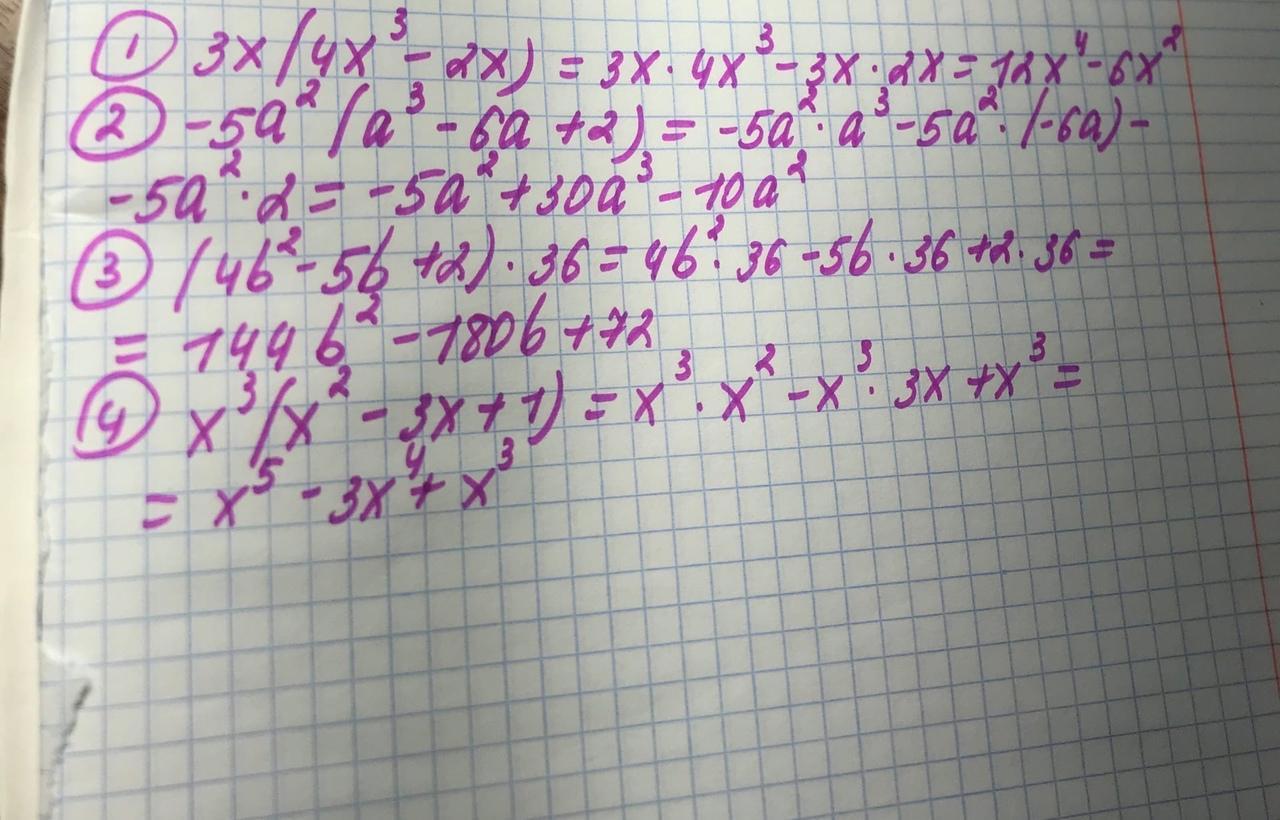 ① 3x(4x³ - 2x) = 3x · 4x³ - 3x · 2x = 12x⁴ - 6x²
② -5a² (a³ - 6a + 2) = -5a² · a³ - 5a² · (-6a) -
-5a² · 2 = -5a² + 30a³ - 10a²
③ (4b² - 5b + 2) · 36 = 4b² · 36 - 5b · 36 + 2 · 36 =
= 144b² - 180b + 72
④ x³(x² - 3x + 1) = x³ · x² - x³ · 3x + x³ =
= x⁵ - 3x⁴ + x³